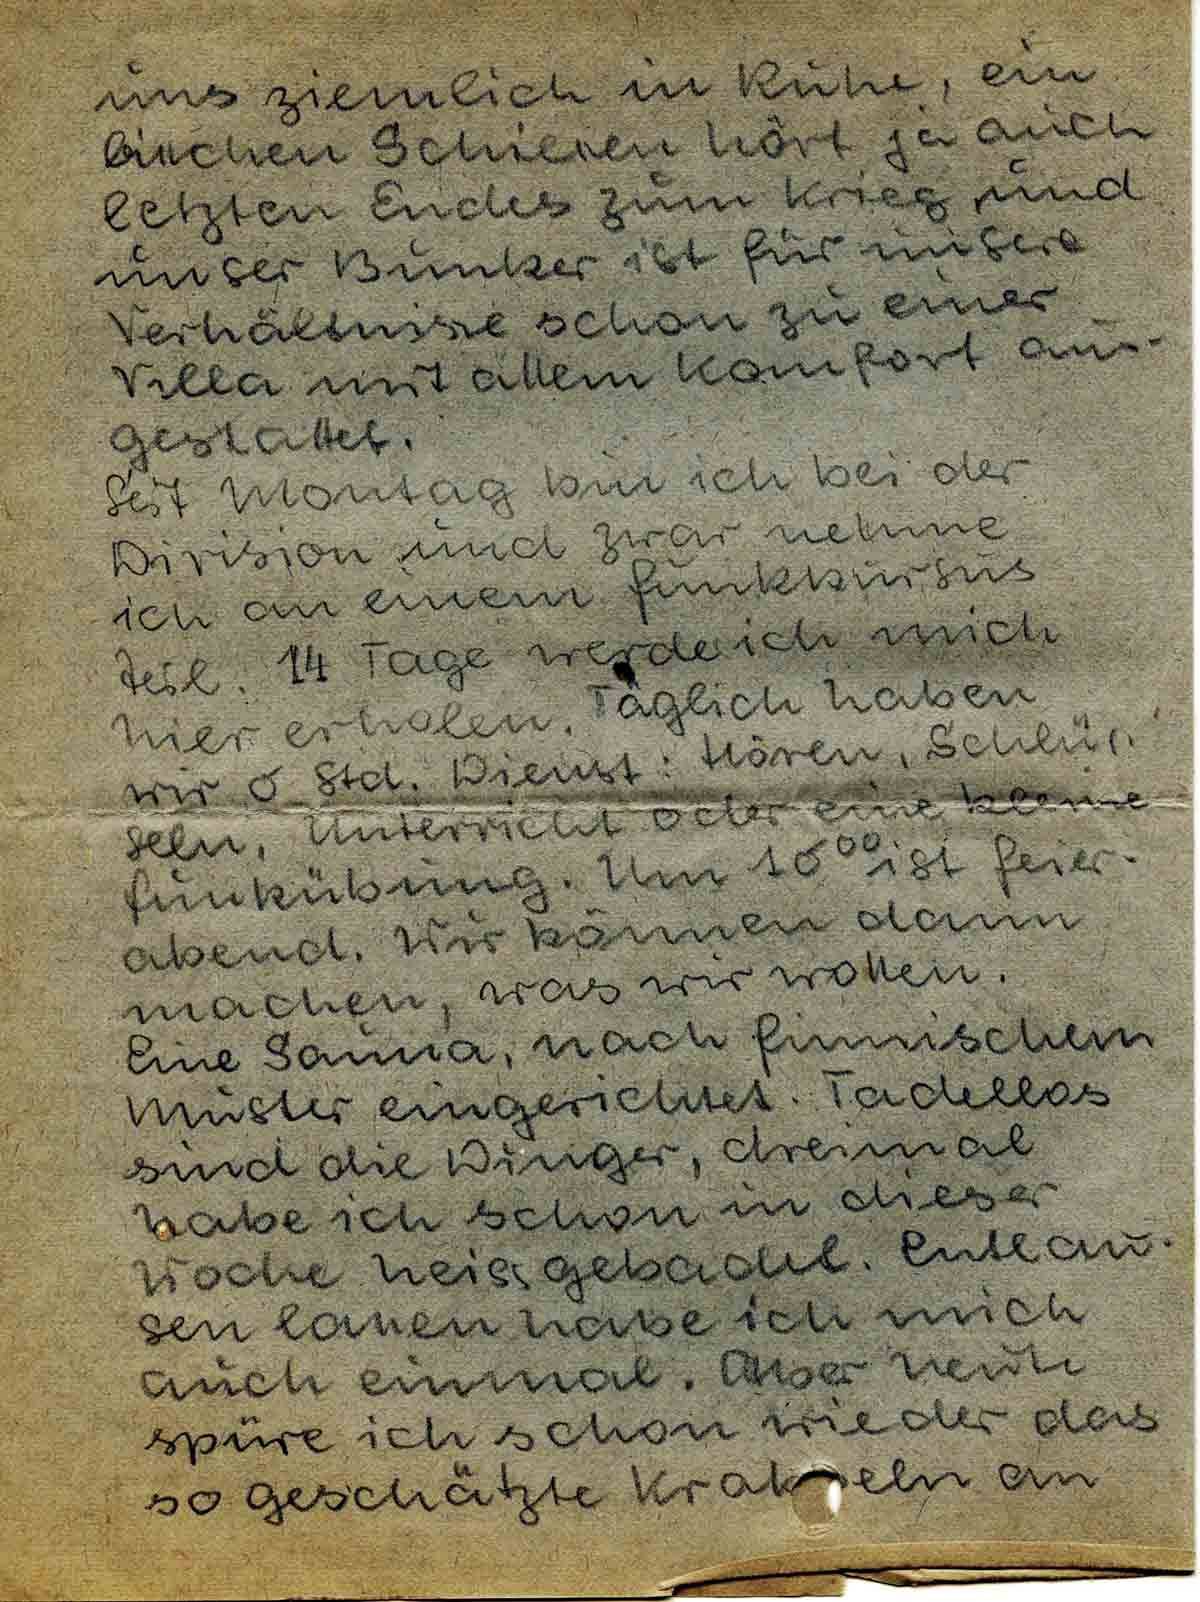 uns ziemlich in Ruhe, ein
bisschen Schiessen hört ja auch
letzten Endes zum Krieg und
unser Bunker ist für unsere
Verhältnisse schon zu einer
Villa mit allem Komfort aus-
gestattet.
Seit Montag bin ich bei der
Division und zwar nehme
ich an einem Funkkursus
teil. 14 Tage werde ich mich
hier erholen. Täglich haben
wir 6 Std. Dienst: Hören, Schlüs-
seln, Unterricht oder eine kleine
Funkübung. Um 16⁰⁰ ist Feier-
abend. Wir können dann
machen, was wir wollen.
Eine Sauna, nach finnischem
Muster eingerichtet. Tadellos
sind die Dinger, dreimal
habe ich schon in dieser
Woche heiss gebadet. Entlau-
sen lassen habe ich mich
auch einmal. Aber heute
spüre ich schon wieder das
so geschätzte Krabbeln an